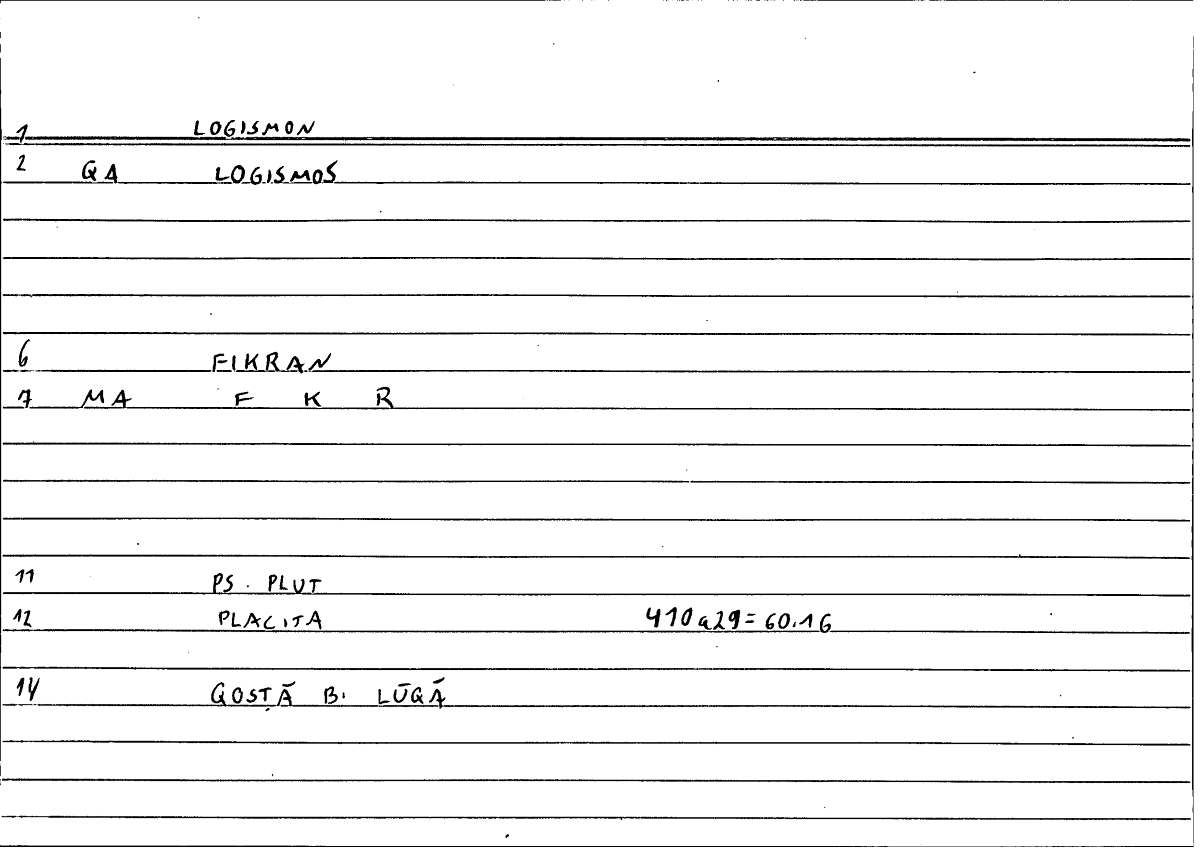 1 LOGISMON
2 QA LOGISMOS
6 FIKRAN
7 MA F K R
11 PS. PLUT
12 PLACITA 410a29=60.16
14 QOSṬĀ B. LŪQĀ